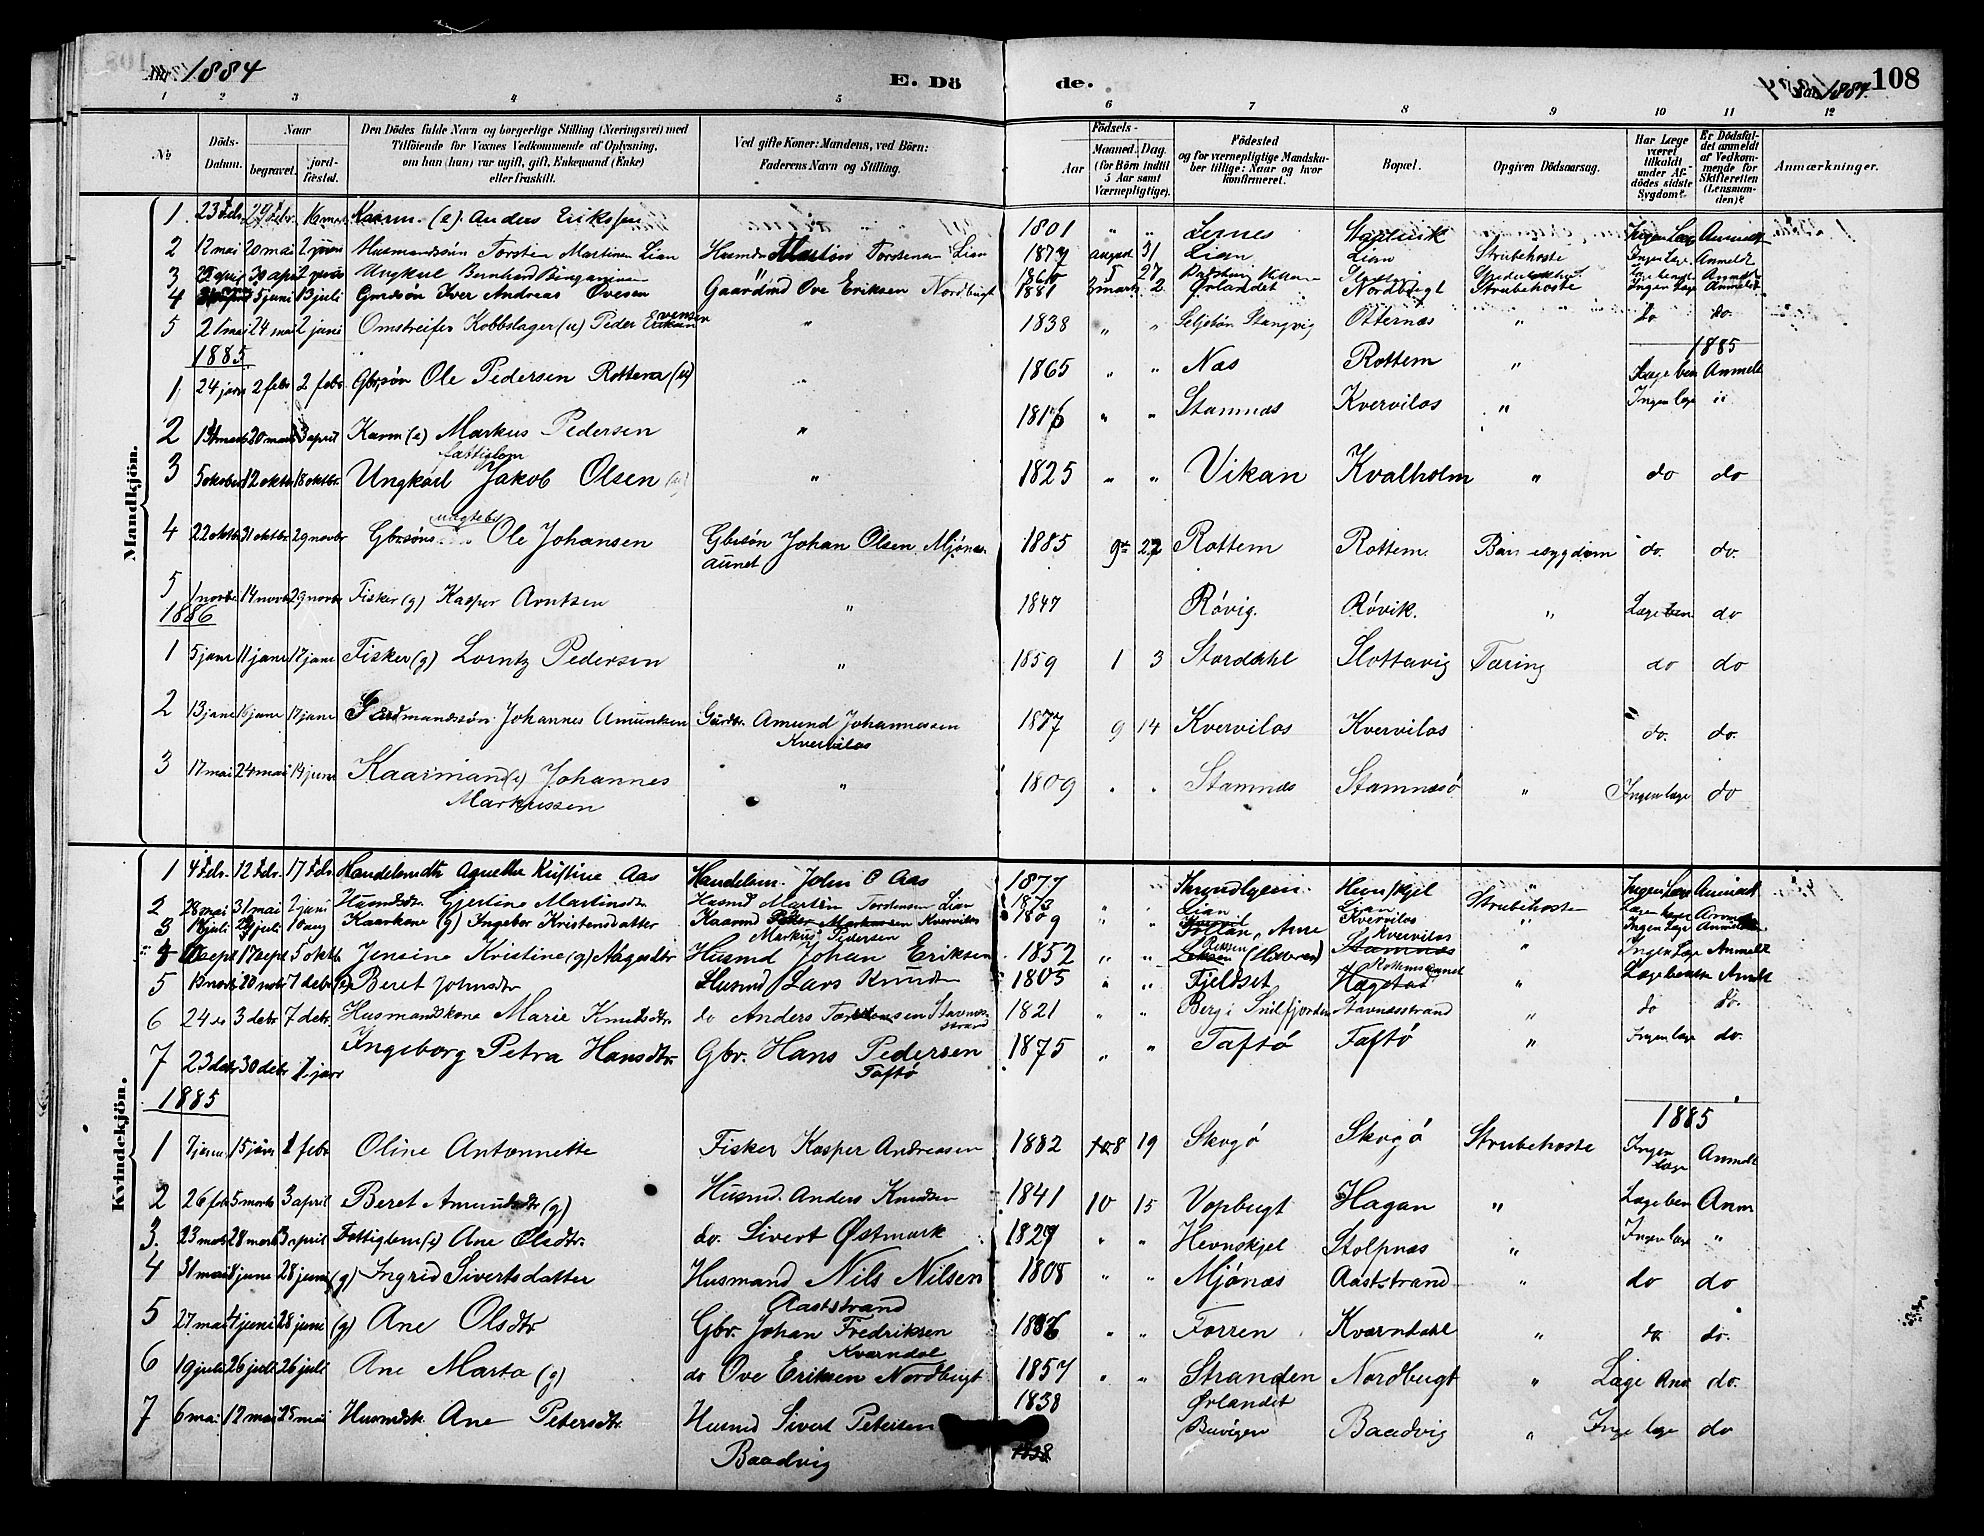 1884
E. Dö
de.
1884.
108
1 2 3 4 5 6 7 8 9 10 11 12
№ Döds-Datum. Naar begravet. jordfæstet. Den Dödes fulde Navn og borgerlige Stilling (Næringsvei) med Tilföiende for Voxnes Vedkommende af Oplysning, om han (hun) var ugift, gift, Enkemand (Enke) eller fraskilt. Ved gifte Koner: Mandens, ved Börn: Faderens Navn og Stilling. Födsels- Aar Maaned. Dag. (for Börn indtil 5 Aar samt Værnepligtige). Födested og for værnepligtige Mandskaber tillige: Naar og hvor konfirmeret. Bopæl. Opgiven Dödsaarsag. Har Læge været tilkaldt under Afdödes sidste Sygdom? Er Dödsfaldet anmeldt af Vedkommende for Skifteretten (Lensmanden)? Anmærkninger.
Mandkjön.
1. 23 Febr. 29 Febr. 16 mar Kaarm. (e). Anders Eriksen 1801 " " Lernes Ingen Læg Anmeldt
2 12 mai 20 mai 2 juni Husmandssön Torsten Martinus Lian Husmd Martin Torstensen Lian 1877 august 31 Lian Lian Strubehoste Ingen Læ. Anmeldt
3 30 apr 2 juni Ungkul Bernhard 1860 5 27
4 5 juni 13 juli Gmdsön Iver Andreas Ovesen Gaardmd Ove Eriksen Nordbugt 1881 3 marts 2 Ørlandet Nordbugt Strubehoste Ingen Læge Anmeldt
5 21 mai 24 mai 2 juni Omstreifer Kobbslager (u) Peder Evensen " 1838 " " Stangvig Otternæs " do do.
1885 1885
1 24 janr 2 febr 2 febr Gbr.sön Ole Pedersen Rottem (u) " 1865 " " Næs Rottem " Læge ben Anmeldt
2 20 mar 3 april Karm (e) Markus Pedersen " 1816 " " Stamnæs Kvervilos " Ingen læge "
fattiglem
3 5 oktober 12 oktb 18 oktbr. Ungkarl Jakob Olsen (u) " 1825 " " Vikan Kvalholm " do do
4 22 oktbr 31 oktbr 29 novbr Gbrsöns Ole Johansen Gbrsön Johan Olsen Mjónes- 1885 9de 22 Rottem Rottem. Barnesygdom do. do.
aunet
5 1 novbr 14 novbr 29 novbr Fisker (g) Kasper Arntsen " 1847 Róvig. Róvik. " Læge ben do
1886
1 5 janr 11 janr 17 janr Fisker (g) Lorntz Pedersen " 1859 1 3 Stordahl Slottavig Tæring do do
2 13 janr 16 janr 17 janr Gaardmandssön Johannes Amundsen Gårdbr. Amund Johannessen 1877 9 14 Kvervilos Kvervilos do. do.
Kvervilos
3 17 mai 24 mai 14 juni Kaarmand (e) Johannes " 1809 " " Stamnæs Stamnæsö " Ingen læge do
Markussen
Kvindekjön.
1 4 Febr. 12 Febr. 17 Febr. Handelsmdtr Agnethe Kristine Aas Handelsm. John O Aas 1877 Hevnskjel " Ingen Læg Anmeldt
2 28 mai 31 mai 2 juni Husmdsdtr. Gjertine Martinsdtr Husmd Martin Torstensen Lian 1873 " " Lian Lian Strubehoste
3 juli juli 10 aug Kaarkone (g) Ingebor Kristensdatter Kaarmd Markus Pedersen Kvervilos 1809 " Aure Kvervilos " Ingen Læge Anmeldt
4 sept 17 sept 5 oktb Jensine Kristine (g) Aagesdtr Husmd Johan Eriksen 1852 " " (Hitteren) Kvervilos " Ingen Læge Anmeldt
5 novb 20 novb 7 debr (e) Beret Johnsdtr Husmd Lars Knudsen 1805 " " Fjeldset Rottemsaunet " Læge Anmdt
6 24 do 3 debr 7 debr. Husmandskone Marie Knudsdtr do Anders Torstensen Stavnæsstrand 1821 " " Berg i Snilfjorden Stavnæsstrand " do do.
7 23 debr 30 debr 1 janr Ingeborg Petra Hansdtr. Gbr. Hans Pedersen 1875 " " Taftö Taftö " Ingen læge do.
Taftö
1885 1885
1 7 janr 15 janr 1 febr Oline Antonnette Fisker Kasper Andreasen 1882 8 19 Skogö Skogö Strubehoste Ingen læge Anmeldt
2 26 feb 5 marts 3 april Beret Amundsdtr (g) Husmd. Anders Knudsen 1841 10 15 Vopbugt Hagan " Læge ben Anm
3. 23 mar 28 mars 3 april Fattiglem (e) Ane Olsdtr. do. Sivert Østmark 1827 " " Hevnskjel Stolpnæs " Ingen læge "
4 31 mai 8 juni 28 juni (g) Ingrid Sivertsdatter Husmand Nils Nilsen 1808 " " Mjónæs Aaststrand " do do
Aaststrand
5 27 mai 4 juni 28 juni (g) Ane Olsdtr Gbr. Johan Fredriksen " " Forren Kværndahl " do do.
Kværndal
6 19 juli 26 juli 26 juli Ane Marta (g) do Ove Eriksen Nordbugt 1857 " " Stranden Nordbugt " Læge Anv do.
Ørlandet
7 6 mai 12 mai 25 mai Husmdsk. Ane Petersdtr. Husmd Sivert Petersen 1838 Buvigen Baadvig " Inge læge do
Baadvig 1838